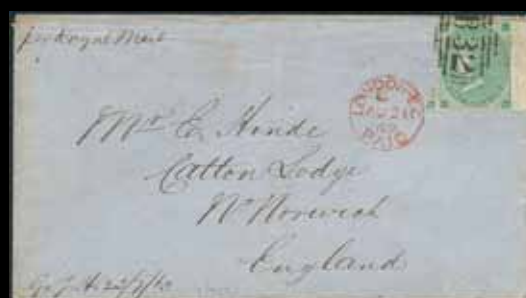 per Royal Mail
B32
LONDON
PAID
Mr E. Hinde
Catton Lodge
Nr Norwich
England